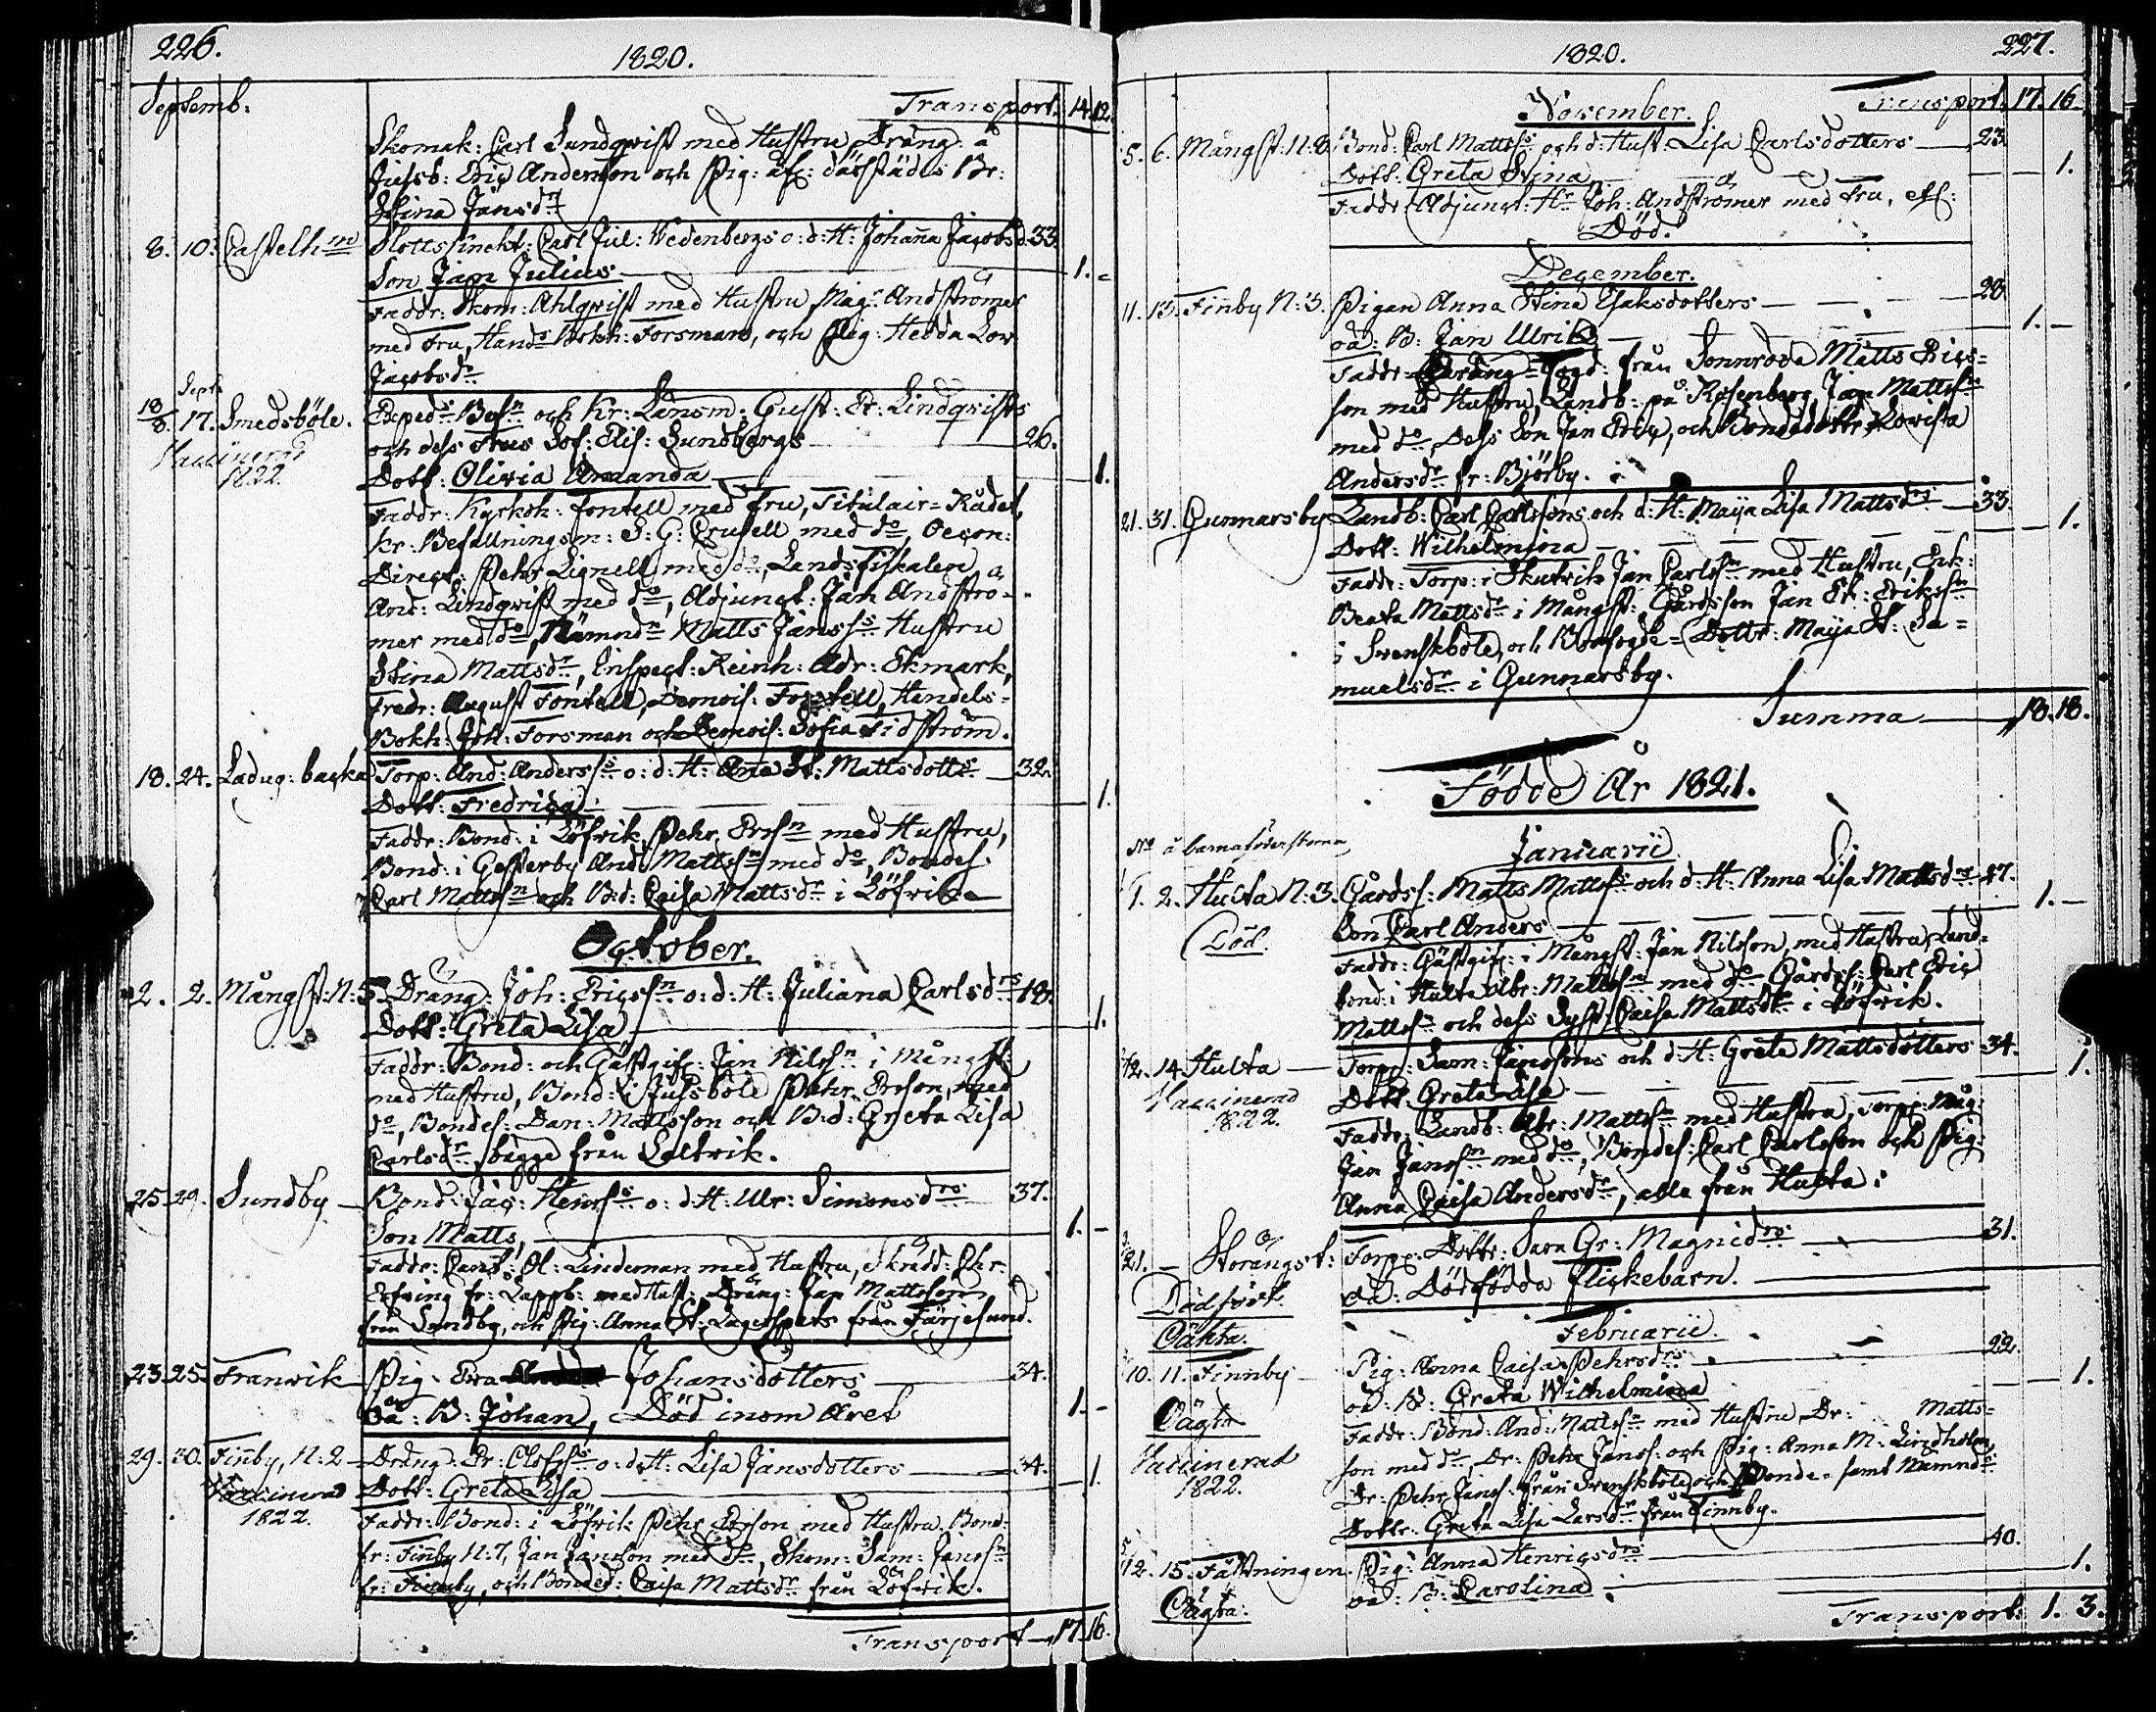 226.
1820.
Septemb:
Transport. 14. 12.
Skomak: Carl Sundqvist med Hustru Dräng: å
Jussb: Eric Anderson och Pig: af: därstädes Br:
Stina Jansdr
8. 10. Castelhm Slottsknekt: Carl Jul: Wedenbergs o: d: H: Johanna Jacobsd. 33.
Son Jan Julius 1. -
Faddr: Skom: Ahlqvist med Hustru, Mag: Andströmer
med Fru, Hands Bokh: Forsman, och Pig: Hedda Lov
Jacobsdr
Sept
18/8. 17. Smedsböle. Exped: Befn och Kr: Länsm: Gust: Er: Lindqvists
och dess Frus Sof: Elis: Sundbergs 26.
Vaccinerad
1822.
Dott: Olivia Amanda 1.
Faddr: Kyrkoh: Fontell med Fru, Titulair-Rådet,
Kr: Befallningsm: S: G: Crusell med do, Oecon:
Direct: Pehr Lignell med do, Landsfiskalen
And: Lindqvist med do, Adjunct: Jan Andströ-
mer med do, Nämndn Matts Janss Hustru
Stina Mattsdr, Inspect: Reinh: Adr: Ekmark,
Fredr: August Fontell, Demois: Fontell, Handels-
Bokh: Joh: Forsman och Demois: Sofia Tidström.
18. 24. Ladug: backa Torp: And: Anderss o: d: H: Ana St: Mattsdotts 32.
Dott: Fredrica 1.
Faddr: Bond: i Löfvik Pehr Erssn med Hustru,
Bond: i Gesterby And: Mattssn med do, Bondes:
Carl Mattssn och B:d: Caisa Mattsdr i Löfvik
October.
2. 2. Mångst: N: 5 Dräng: Joh: Ericssn o: d: H: Juliana Carlsdrs 18.
Dott: Greta Lisa 1.
Faddr: Bond: och Gästgif: Jan Nilssn i Mångst:
med Hustru, Bond: i Jussböle Pehr Ersson, med
do, Bondes: Dan: Mattsson och B:d: Greta Lisa
Carlsdr, bägge från Saltvik.
25. 29. Sundby Bond: Jac: Henrss o: d: H: Ulr: Simonsdrs 37.
Son Matts, 1. -
Faddr: Cant: Ol: Lindeman med Hustru, Skrädd: Chr:
Erfving fr: Lappb: med Hust: Dräng: Jan Mattsson
från Sundby, och Pig: Anna St: Lagerspets från Färjesund.
23. 25. Tranvik Pig: Eva Johansdotters 34.
oä: B: Johan, Död inom Året 1. -
29. 30. Finby, N: 2 Dräng: Er: Olofss o: d: H: Lisa Jansdotters 34.
Vaccinerad
1822.
Dott: Greta Lisa 1.
Faddr: Bond: i Löfvik Pehr Ersson med Hustru, Bond:
fr: Finby N: 7, Jan Jansson med do, Skom: Sam: Janssn
fr: Finnby, och Bonded: Caisa Mattsdr från Löfvik.
Transport 17. 16.
1820.
227.
November. Transport. 17. 16.
5. 6. Mångst: N: 8. Bond: Carl Mattss och d: Hust: Lisa Carlsdotters 23
Dott: Greta Stina 1.
Faddr: Adjunct: Hr Joh: Andströmer med Fru, etc:
Död.
December.
11. 13. Finby N: 3. Pigan Anna Stina Esaksdotters 28
oä: B: Jan Ulrik 1. -
Faddr: Dräng-Fogd: från Sonnröda Matts Erics-
son med Hustru, Landb: på Rosenberg Jan Mattssn
med do, Dess Son Jan Eric, och Bondedottr: Lovisa
Andersdr fr: Björby.
21. 31. Gunnarsby Landb: Carl Carlssons och d: H: Maija Lisa Mattsdrs 33
Dott: Wilhelmina 1.
Faddr: Torp: i Skutvik Jan Carlssn med Hustru, Enk:
Beata Mattsdr i Mångst: Gårdsson Jan Er: Erikssn
i Svenskböle, och Kronfogde-Dottr: Maija St: Sa-
muelsdr i Gunnarsby.
Summa 18. 18.
Födde År 1821.
No å barnaföderskorna
Januarii
1. 2. Hulta N: 3. Gårdss: Matts Mattss och d: H: Anna Lisa Mattsdrs 27.
Död.
Son Carl Anders 1. -
Faddr: Gästgif: i Mångst: Jan Nilsson med Hustru, Land-
bond: i Hulta Abr: Mattssn med do Gårdss: Carl Eric
Mattssn och dess Syst: Caisa Mattsdr i Löfvik.
12. 14. Hulta Torp: Sam: Janssons och d: H: Greta Mattsdotters 34.
Vaccinerad
1822.
Dott: Greta Lisa 1.
Faddr: Landb: Abr: Mattssn med Hustru, Torpp: Måg:
Jan Janssn med do, Bondes: Carl Carlsson och Pig:
Anna Caisa Andersdr, alla från Hulta.
21. - Storängst: Torpp: Dottr: Sara Gr: Magnidrs 31.
Dödfödt.
Oäkta.
oä: Dödfödda flickebarn.
Februarii.
10. 11. Finnby Pig: Anna Caisa Pehrsdrs 22.
Oägta
Vaccinerad
1822.
oä: B: Greta Wilhelmina 1.
Faddr: Bond: And: Mattssn med Hustru, Dr: Matts-
son med do, Dr: Pehr Janss: och Pig: Anna M: Lindholm
Dr: Pehr Janss: från Svenskböle, och Bonde- samt Nämnds
Dottr: Greta Lisa Larsdr från Finnby.
12. 15. Fästningen. Pig: Anna Henricsdrs 40.
Oägta:
oä: B: Carolina 1.
Transport: 1. 3.